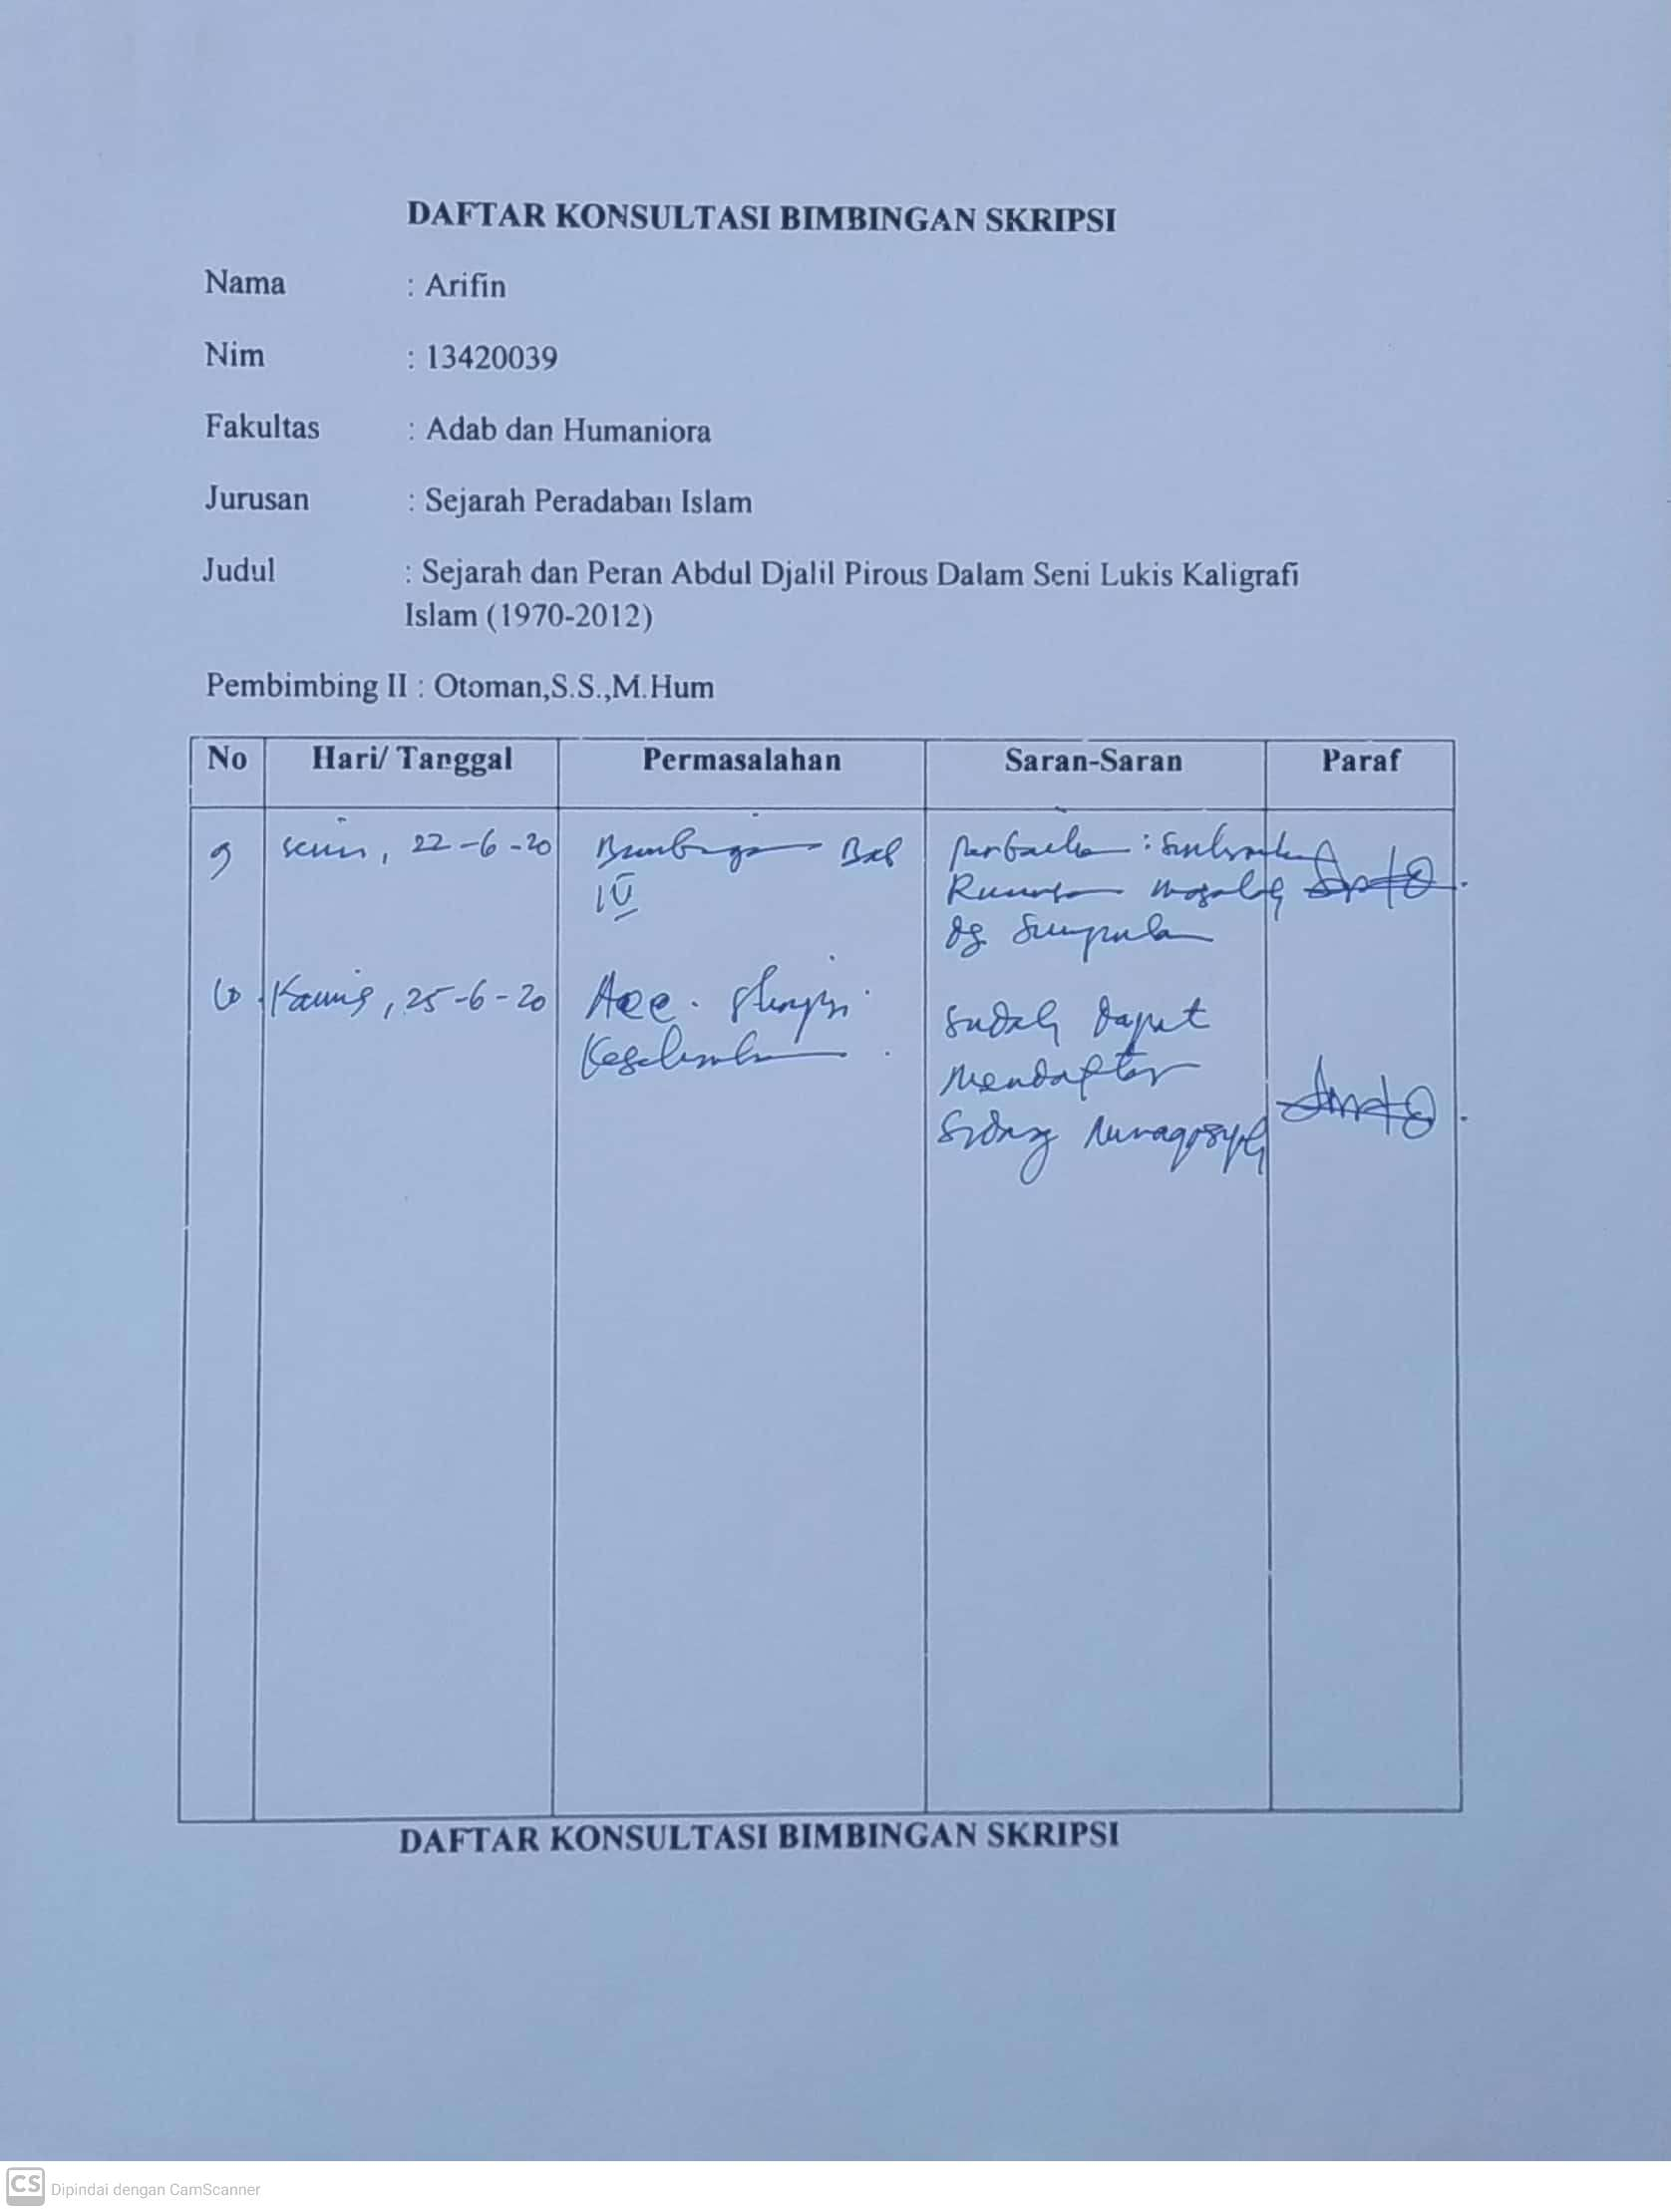 DAFTAR KONSULTASI BIMBINGAN SKRIPSI
Nama : Arifin
Nim : 13420039
Fakultas : Adab dan Humaniora
Jurusan : Sejarah Peradaban Islam
Judul : Sejarah dan Peran Abdul Djalil Pirous Dalam Seni Lukis Kaligrafi
Islam (1970-2012)
Pembimbing II : Otoman,S.S.,M.Hum
No Hari/ Tanggal Permasalahan Saran-Saran Paraf
9 senin, 22-6-20 Bimbingan Bab
IV
Perbaikan :
Rumusan masalah
dg simpulan
10. Kamis, 25-6-20 Acc. Skripsi
Keseluruhan
sudah dapat
mendaftar
Sidang Munaqosyah
DAFTAR KONSULTASI BIMBINGAN SKRIPSI
CS Dipindai dengan CamScanner